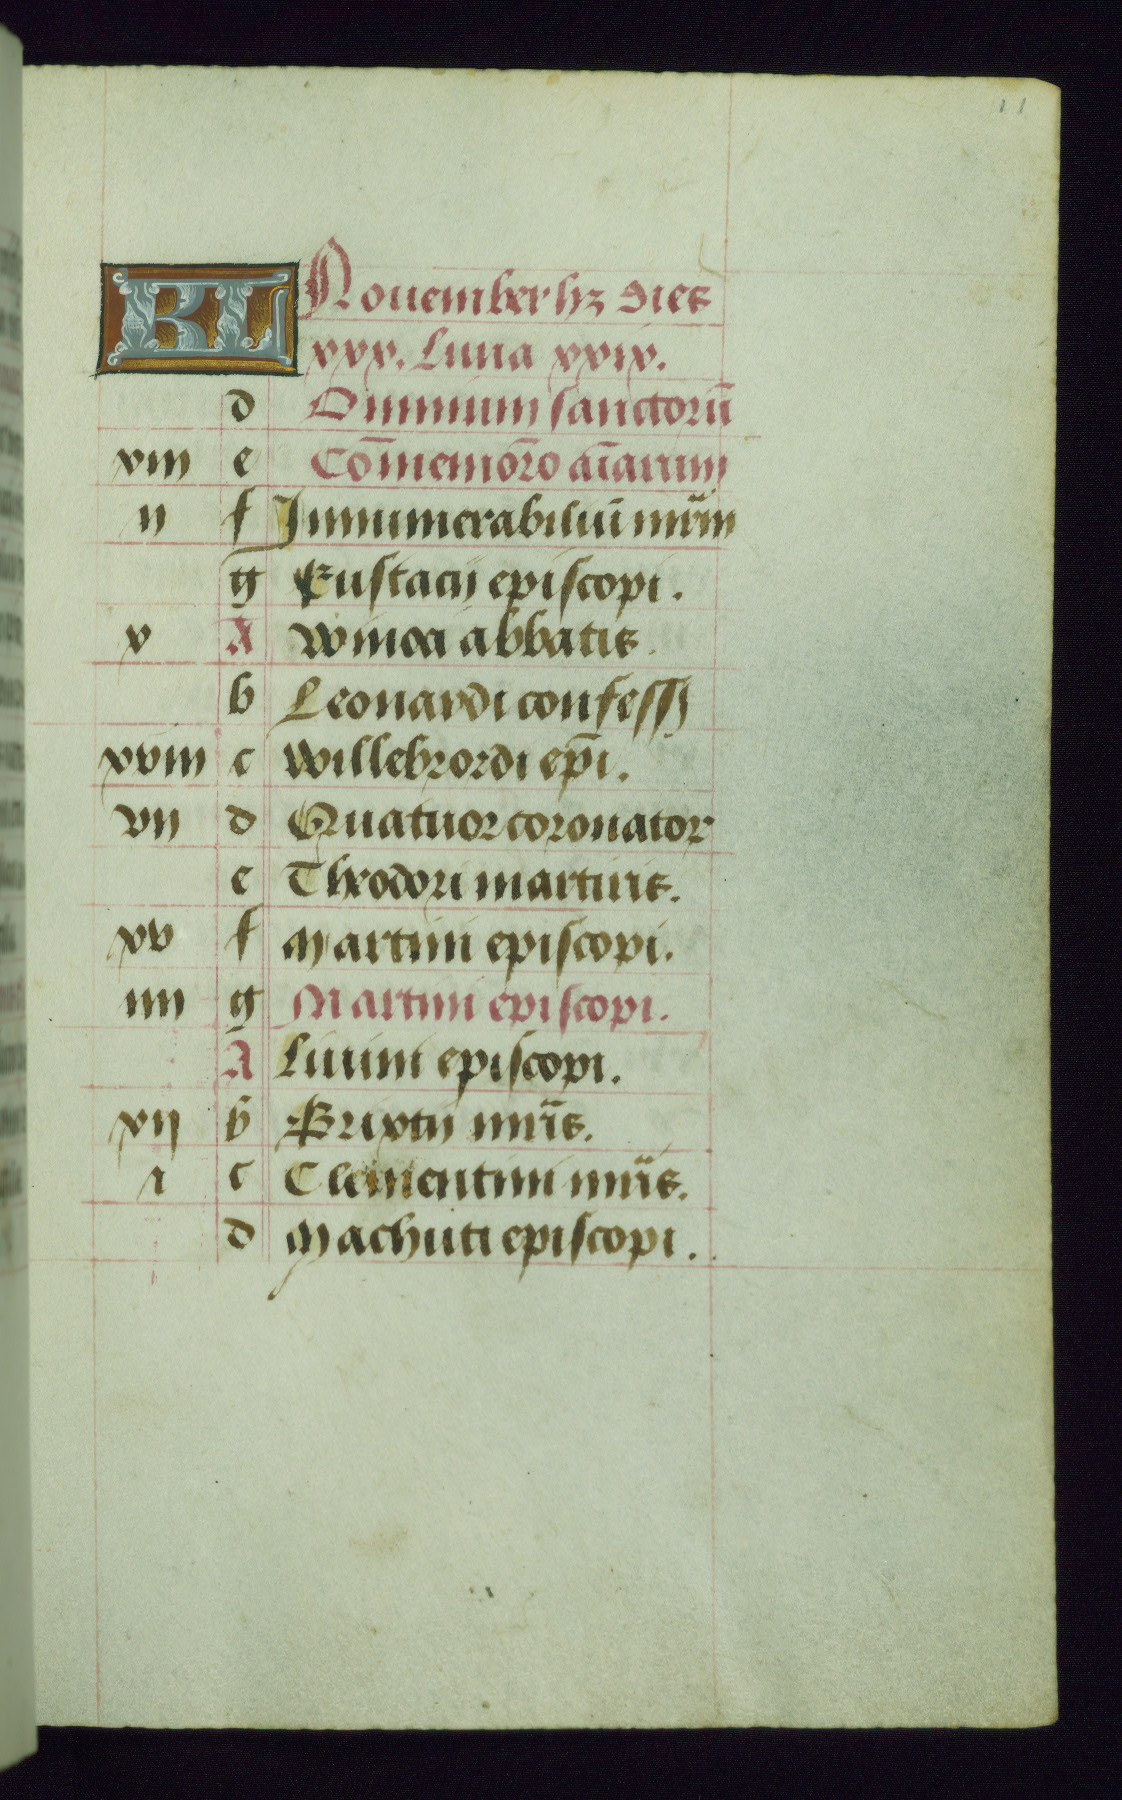 11
KL Nouember hz dies
xxx. Luna xxix.
d Omnium sanctorū
viii e Cōmemorō aīarum
ii f Innumerabiliū mr̄m
g Eustacij episcopi.
v A Winoci abbatis.
b Leonardi confess
xviii c Willebrordi ep̄i.
vii d Quatuor coronator
e Theodori martiris.
xv f Martini episcopi.
iiii g Martini episcopi.
A Liuini episcopi.
xii b Brixtij mr̄is.
i c Clementini mr̄is.
d Machuti episcopi.